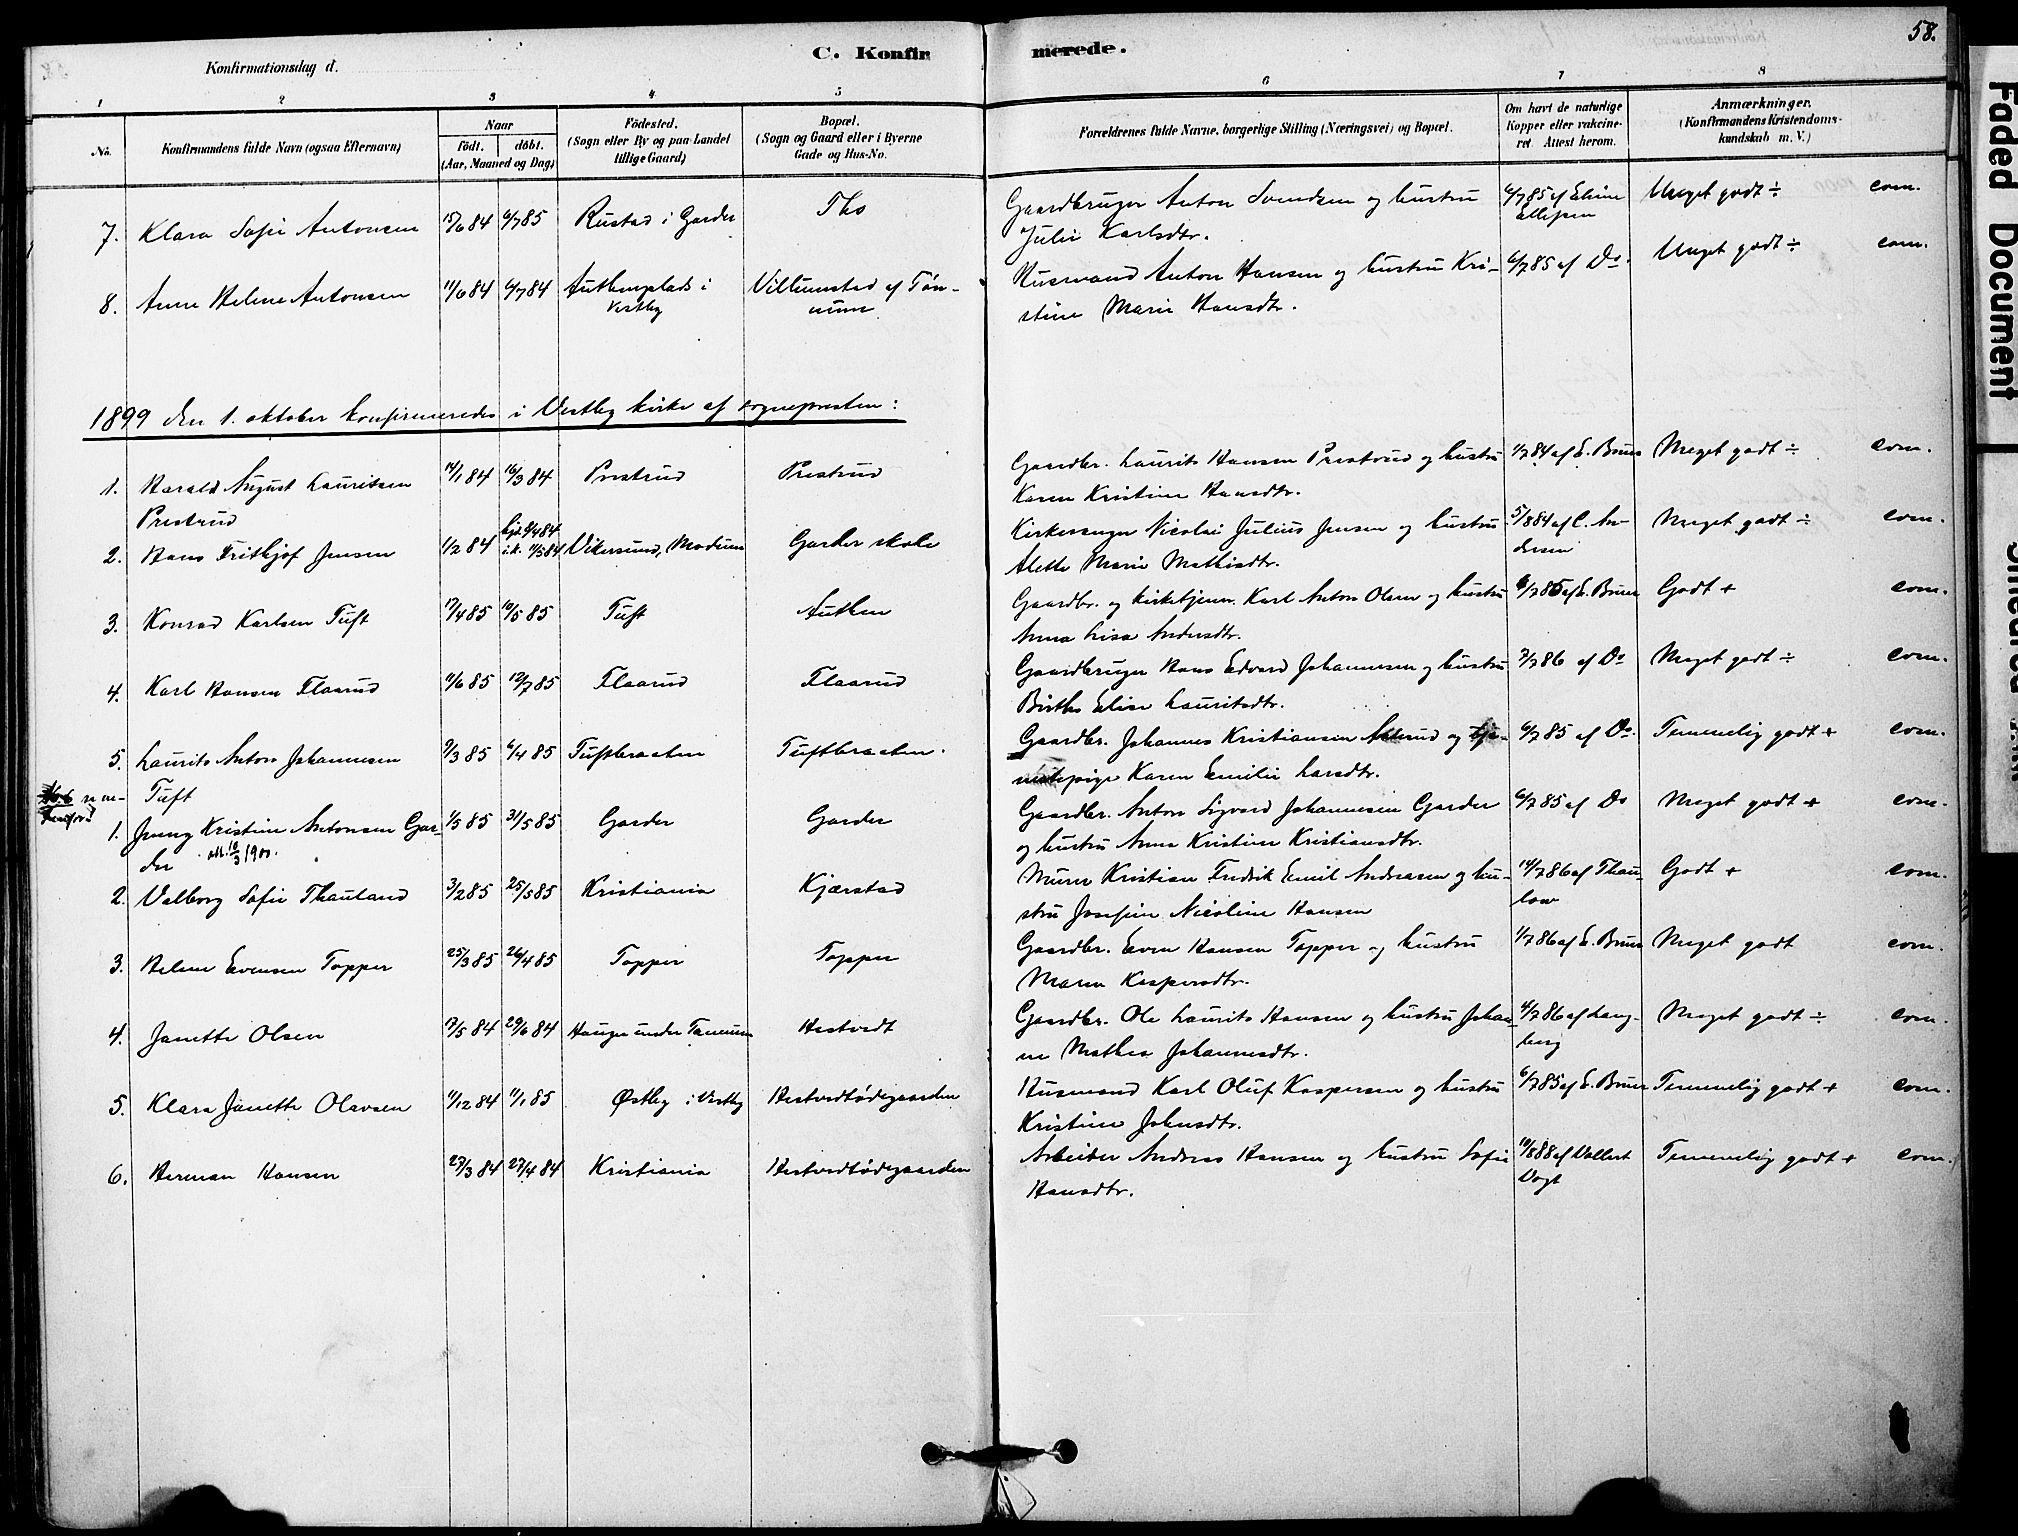 58.
Konfirmationsdag d.
C. Konfirmerede.
1 2 3 4 5 6 7 8
No. Konfirmandens fulde Navn (ogsaa Efternavn)
Naar
födt. döbt.
(Aar, Maaned og Dag)
Födested.
(Sogn eller By og paa Landet
tillige Gaard)
Bopæl.
(Sogn og Gaard eller i Byerne
Gade og Hus-No.
Forældrenes fulde Navne, borgerlige Stilling (Næringsvei) og Bopæl.
Om havt de naturlige
Kopper eller vakcine-
ret. Attest herom.
Anmærkninger.
(Konfirmandens Kristendoms-
kundskab m. V.)
7. Klara Sofie Antonsen 15/6 84 6/7 85 Rustad i Garder Tho Gaardbruger Anton Svendsen og hustru 6/7 85 af Eline Meget godt ÷ com.
Julie Karlsdtr. Ellefsen
8. Anne Helene Antonsen 11/6 84 6/7 84 Authenplads i Villumstad af Tøn- Husmand Anton Hansen og hustru Kri- 6/7 85 af Do. Meget godt ÷ com.
Vestby num stine Marie Hansdtr.
1899 den 1. oktober konfirmeredes i Vestby kirke af sognepresten:
1. Harald August Lauritsen 14/1 84 16/3 84 Prestrud Prestrud Gaardbr. Laurits Hansen Prestrud og hustru 1/7 84 af E. Bruun Meget godt ÷ com.
Prestrud Karen Kristine Hansdtr.
2. Hans Frithjof Jensen 1/2 84 hjd. 9/4 84 Vikersund, Modum Garder skole Kirkesanger Nicolai Julius Jensen og hustru 5/8 84 af C. An- Meget godt ÷ com.
i k. 11/5 84 Alette Marie Mathisdtr. dersen
3. Konrad Karlsen Tuft 17/4 85 10/5 85 Tuft Authen Gaardbr. og kirketjener Karl Anton Olsen og hustru 6/7 85 af E. Bruun Godt + com.
Anna Lisa Andersdtr.
4. Karl Hansen Flaarud 11/6 85 12/7 85 Flaarud Flaarud Gaardbruger Hans Edvard Johannesen og hustru 7/7 86 af Do Meget godt ÷ com.
Birthe Elise Lauritsdtr.
5. Laurits Anton Johannesen 9/3 85 6/4 85 Tuftbraaten Tuftbraaten. Gaardbr. Johannes Kristiansen og tje- 6/7 85 af Do. Temmelig godt + com.
Tuft nestepige Karen Emilie Larsdtr.
1. Jenny Kristine Antonsen Gar- 1/5 85 31/5 85 Garder Garder Gaardbr. Anton Sigvard Johannesen Garder 6/7 85 af Do Meget godt + com.
der att. 10/3 1900. og hustru Anna Kristine Kristiansdtr.
2. Valborg Sofie Thauland 3/2 85 25/5 85 Kristiania Kjærstad Murer Kristian Fredrik Emil Andreasen og hu- 14/7 86 af Thau- Godt + com.
stru Josefine Nicoline Hansen low
3. Helene Evensen Topper 25/3 85 26/4 85 Topper Topper Gaardbr. Even Hansen Topper og hustru 1/7 86 af E. Bruun Meget godt com.
Maren Kaspersdtr.
4. Janette Olsen 17/5 84 29/6 84 Hauger under Tannum Hestvedt Gaardbr. Ole Laurits Hansen og hustru Johan- 4/7 86 af Lang- Meget godt ÷ com.
ne Mathea Johannesdtr. berg
5. Klara Janette Olavsen 11/12 84 11/1 85 Østby i Vestby Hestvedtødegaarden Husmand Karl Oluf Kaspersen og hustru 6/7 85 af E. Bruun Temmelig godt + com.
Kristine Johnsdtr.
6. Herman Hansen 23/3 84 27/4 84 Kristiania Hestvedtødegaarden Arbeider Andreas Hansen og hustru Sofie 10/8 88 af Volbert Temmelig godt + com.
Hansdtr. Vogt
Faded Document